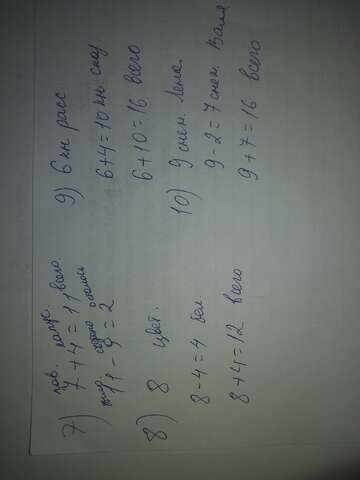 пов. полус.
7) 7 + 4 = 11 всего
11 - 9 = 2
8) 8 цвет.
8 - 4 = 4 бел
8 + 4 = 12 всего
9) 6 кн расс
6 + 4 = 10 кн. сказ
6 + 10 = 16 всего
10) 9 снеж. Лена
9 - 2 = 7 снеж. Валя
9 + 7 = 16 всего